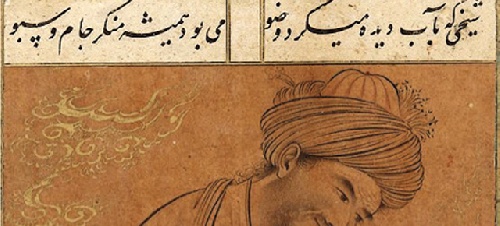 شیخی که بآب دیده میکرد وضو
می بود همیشه منکر جام و سبو